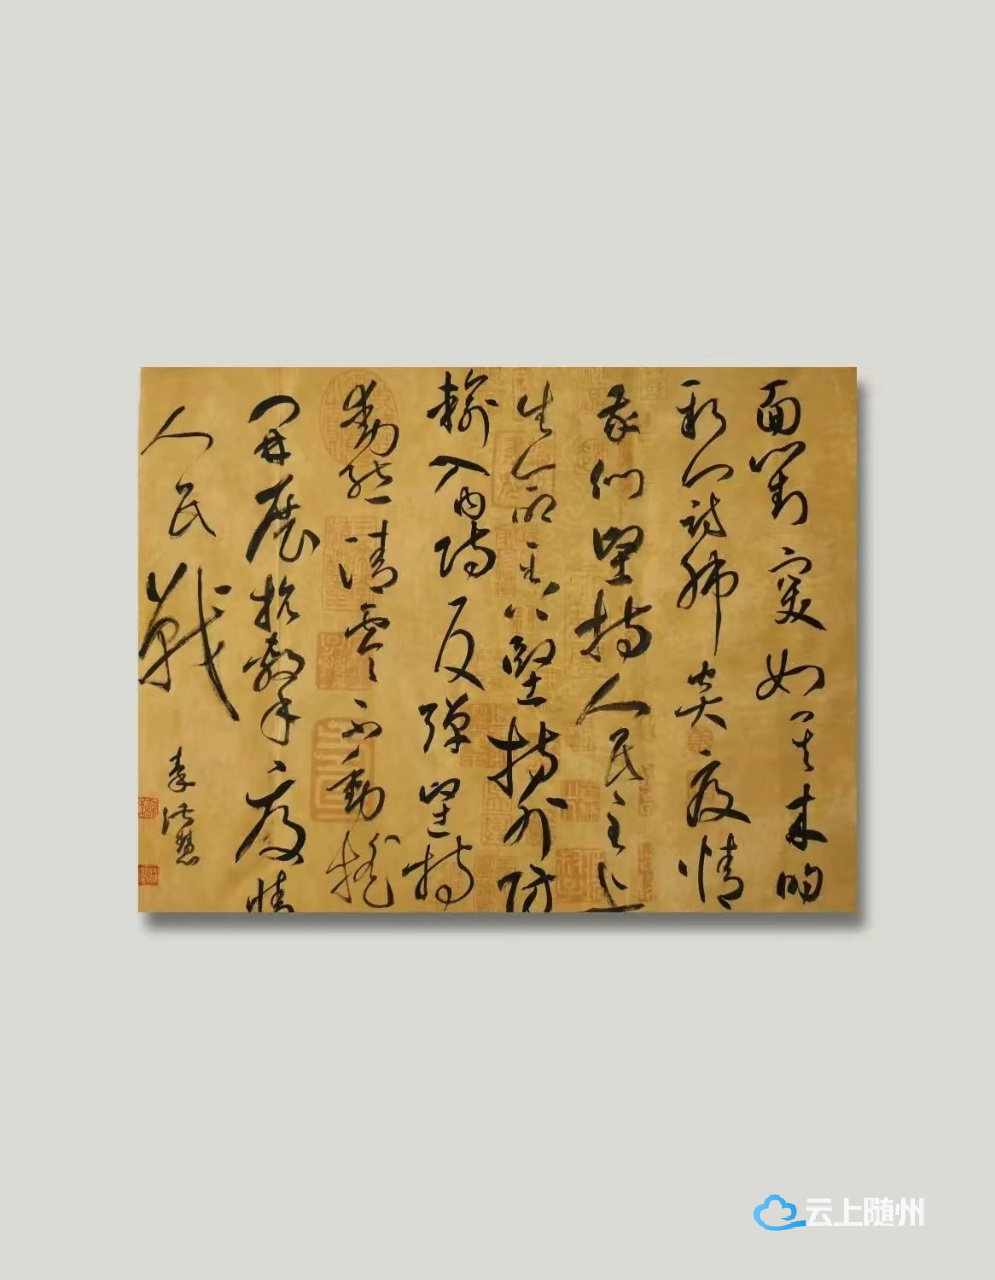 面對突如其来的
新冠肺炎疫情
我们坚持人民至上
生命至上堅持外防
輸入内防反弹坚持
動態清零不動摇
開展抗擊疫情
人民戰
云上随州